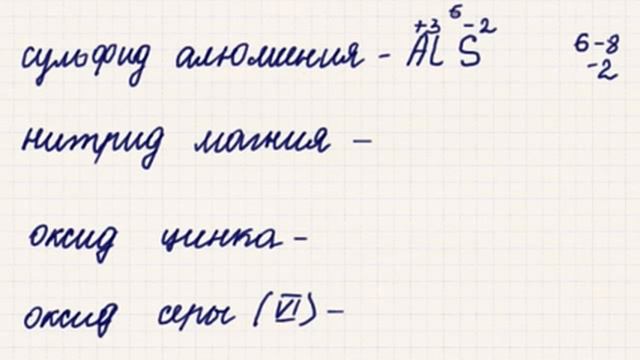 сульфид алюминия - +3 6 -2 Al S 6-8 -2
нитрид магния -
оксид цинка -
оксид серы (VI) -